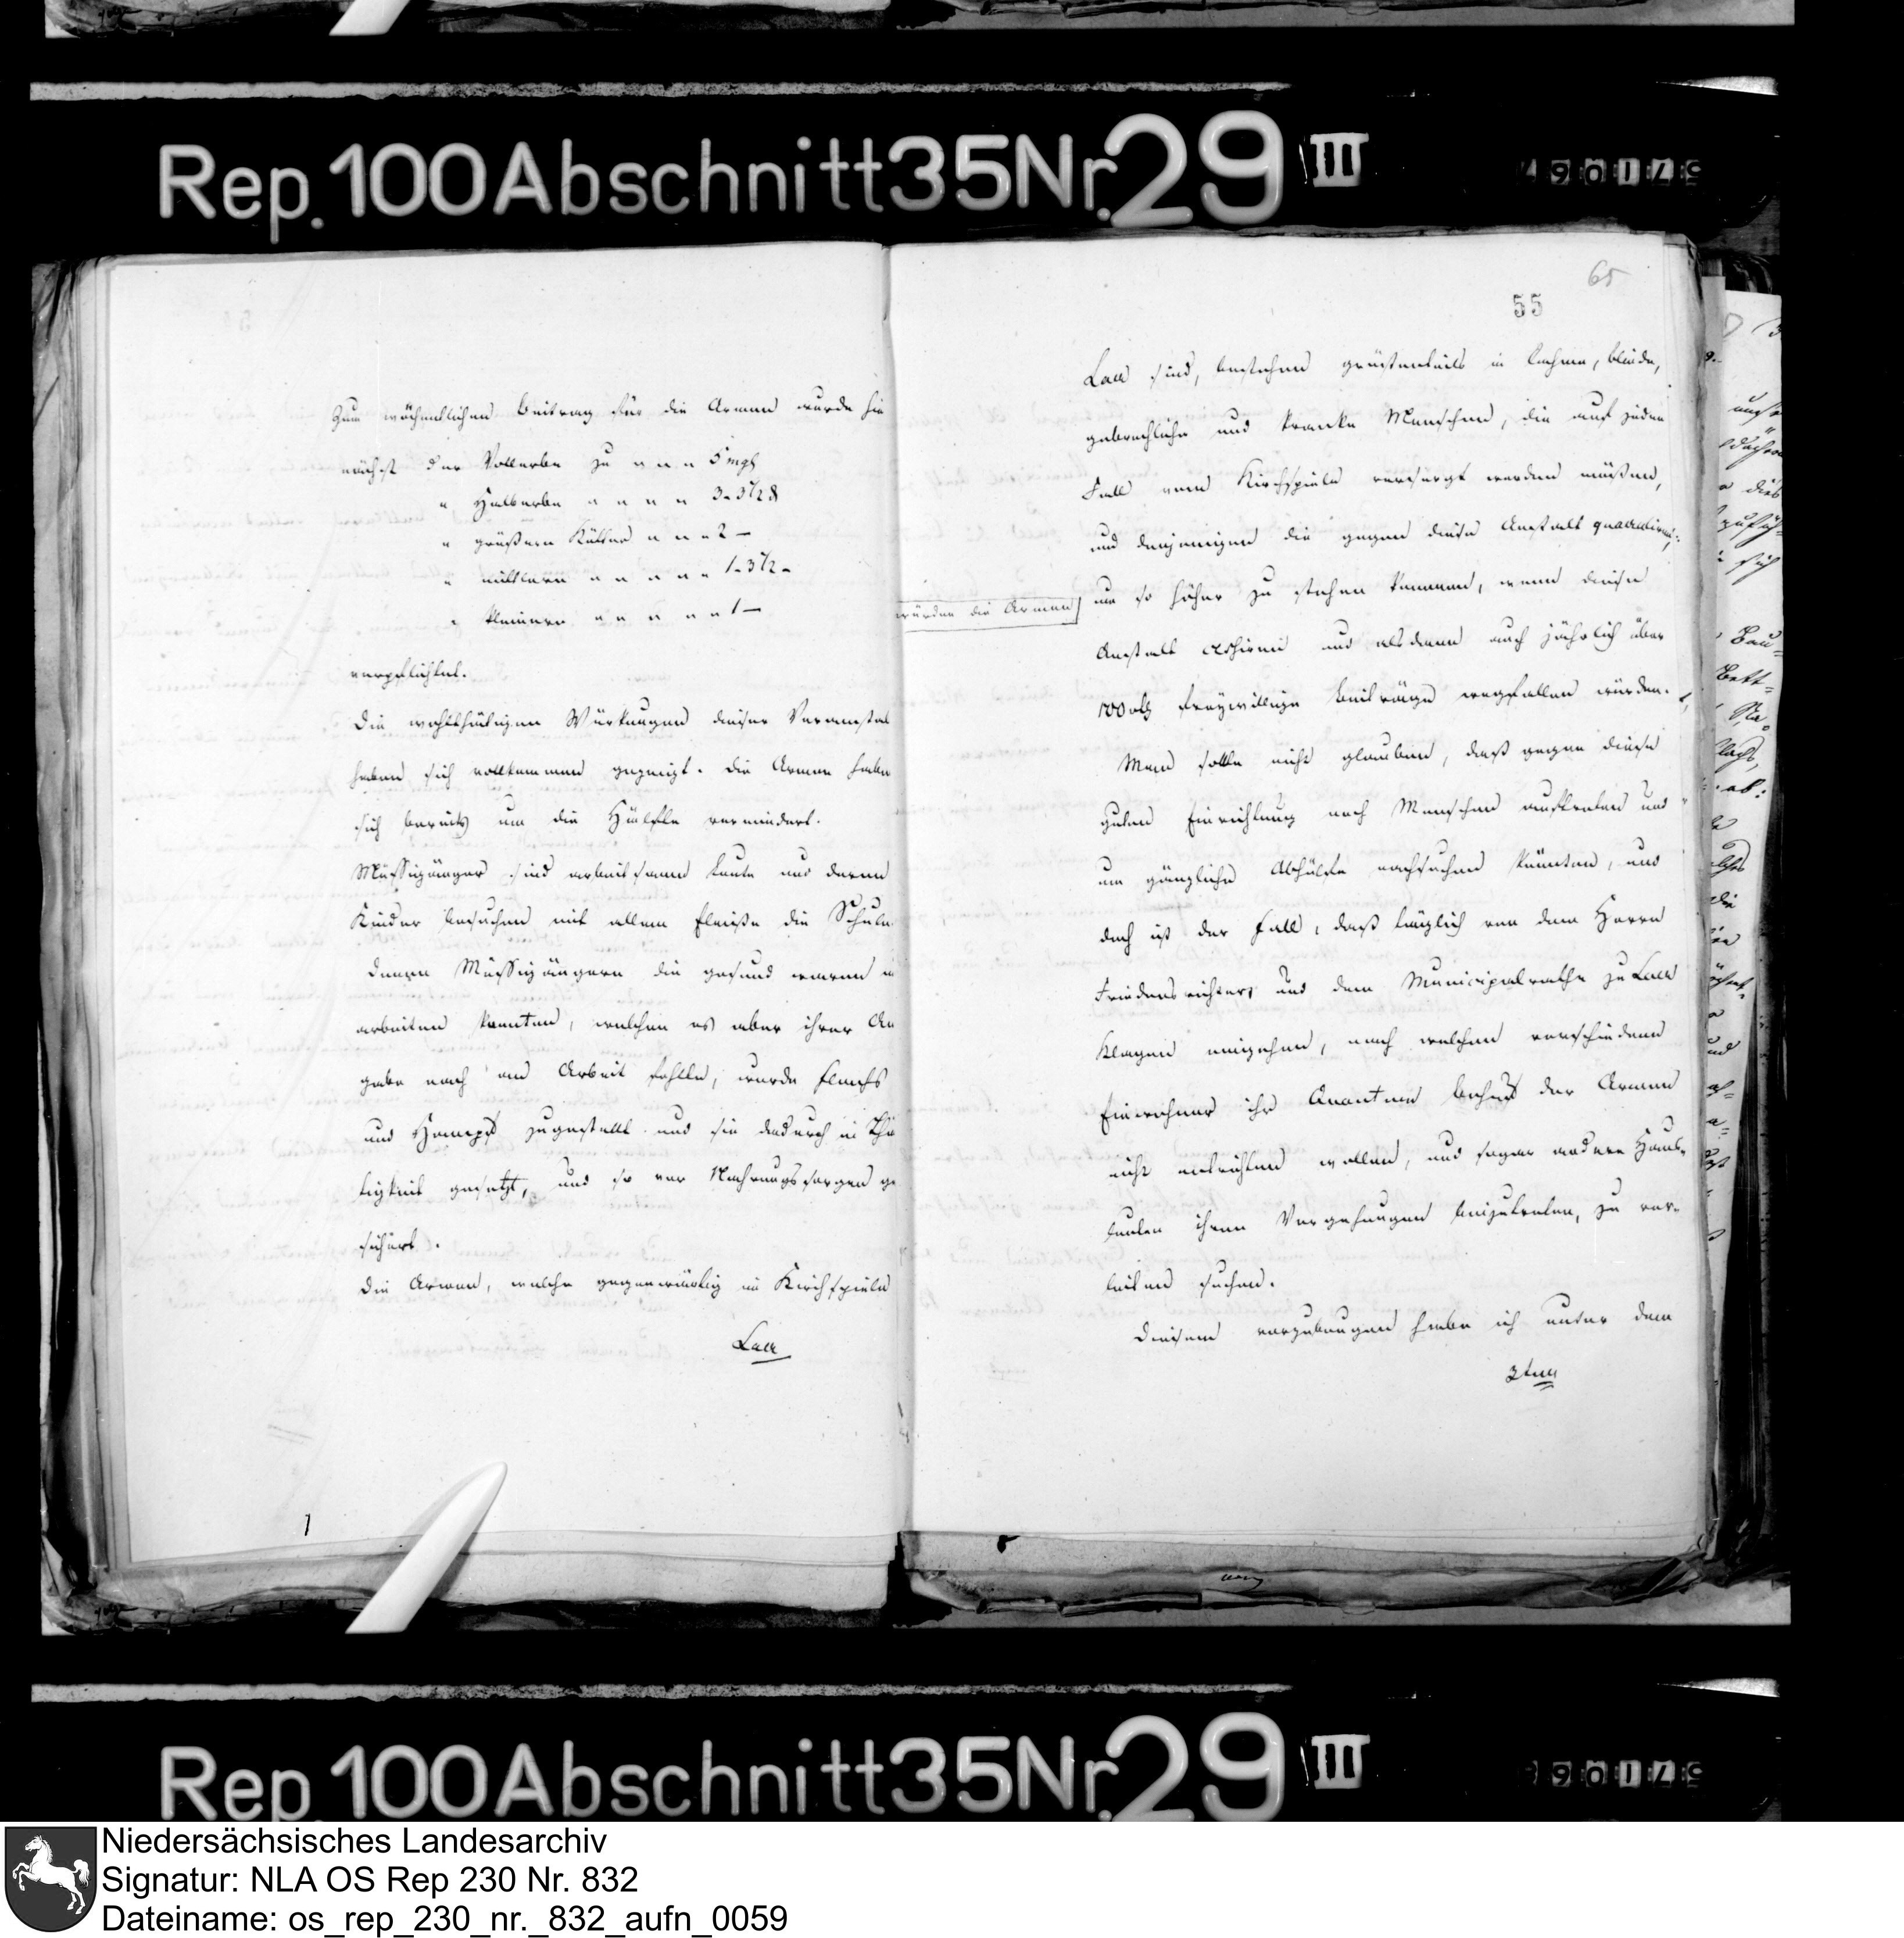 Rep. 100 Abschnitt 35 Nr. 29 III
65
55
Zum wöchentlichen Beitrag für die Armen wurde hie
nächst der Vollerbe zu " " " 5 mgl
" Halberbe " " " " 3 - 3 1/2 ₰
" größern Kötter " " " 2 —
" mittlern " " " " " 1 - 3 1/2 -
" kleinern " " " " " 1 —
verpflichtet.
Die wohlthätigen Würkungen dieser Veranstal
haben sich vollkommen gezeigt. Die Armen habe
sich bereits um die Hälfte vermindert.
Müssigänger sind arbeitsame Leute und deren
Kinder besuchen mit allem Fleiße die Schule
Denen Müssigängern die gesund waren u
arbeiten konnten, welchen es aber ihrer An
gabe nach an Arbeit fehlte, wurde Flachs
und Hampf zugestellt und sie dadurch in Thä
tigkeit gesetzt, und so vor Nahrungssorgen ge
sichert.
Die Armen, welche gegenwärtig im Kirchspiele
Laer
Laer sind, bestehen größtentheils in Lahme, blinde,
gebrechliche und kranke Menschen, die auf jeden
Fall vom Kirchspiele versorgt werden müßen,
und denjenigen die gegen diese Anstalt
würden die Armen
um so höher zu stehen kommen, wenn diese
Anstalt und alsdann auch jährlich über
freywillige Beiträge wegfallen würden.
Man sollte nicht glauben, daß gegen diese
guten Einrichtung noch Menschen auftreten und
um gänzliche Abhülfe nachsuchen könnten, und
doch ist der Fall, daß täglich von dem Herrn
Friedensrichter und dem Municipalrathe zu Laer
Klagen eingehen, nach welchen verschiedene
Einwohner ihr Quantum behuf der Armen
nicht entrichten wollen, und sogar andere Haus-
leuten ihrem Vergehungen beizutreten, zu ver-
leiten suchen.
Diesem vorzubeugen habe ich unter dem
3ten
Rep. 100 Abschnitt 35 Nr. 29 III
Niedersächsisches Landesarchiv
Signatur: NLA OS Rep 230 Nr. 832
Dateiname: os_rep_230_nr._832_aufn_0059